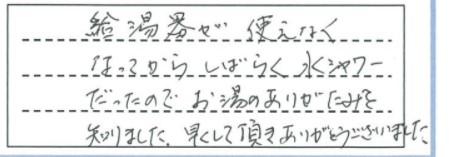 給湯器が使えなく
なってから しばらく 水シャワー
だったので お湯のありがたみを
知りました。早くして頂きありがとうございました